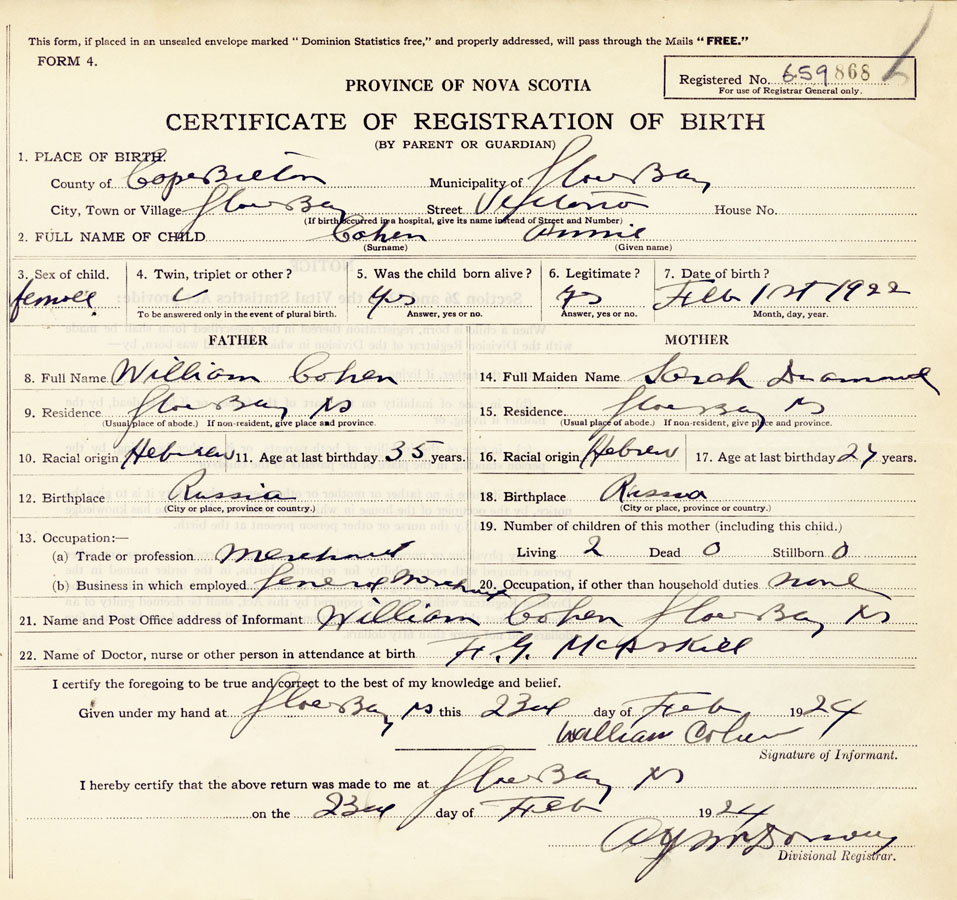 This form, if placed in an unsealed envelope marked " Dominion Statistics free," and properly addressed, will pass through the Mails "FREE."
FORM 4.
Registered No. 659 868
For use of Registrar General only.
PROVINCE OF NOVA SCOTIA
CERTIFICATE OF REGISTRATION OF BIRTH
(BY PARENT OR GUARDIAN)
1. PLACE OF BIRTH.
County of Cape Breton Municipality of Glace Bay
City, Town or Village Glace Bay Street House No.
(If birth occurred in a hospital, give its name instead of Street and Number)
2. FULL NAME OF CHILD Cohen Annie
(Surname) (Given name)
3. Sex of child. 4. Twin, triplet or other? 5. Was the child born alive? 6. Legitimate? 7. Date of birth?
female Yes Yes Feb 1st 1922
To be answered only in the event of plural birth. Answer, yes or no. Answer, yes or no. Month, day, year.
FATHER MOTHER
8. Full Name William Cohen 14. Full Maiden Name Sarah
9. Residence Glace Bay NS 15. Residence. Glace Bay NS
(Usual place of abode.) If non-resident, give place and province. (Usual place of abode.) If non-resident, give place and province.
10. Racial origin Hebrew 11. Age at last birthday 35 years. 16. Racial origin Hebrew 17. Age at last birthday 27 years.
12. Birthplace Russia 18. Birthplace Russia
(City or place, province or country.) (City or place, province or country.)
13. Occupation:— 19. Number of children of this mother (including this child.)
(a) Trade or profession Merchant Living 2 Dead 0 Stillborn 0
(b) Business in which employed General Merchant 20. Occupation, if other than household duties none
21. Name and Post Office address of Informant William Cohen Glace Bay NS
22. Name of Doctor, nurse or other person in attendance at birth McAskill
I certify the foregoing to be true and correct to the best of my knowledge and belief.
Given under my hand at Glace Bay NS this 23rd day of Feb 1924
William Cohen
Signature of Informant.
I hereby certify that the above return was made to me at Glace Bay NS
on the 23rd day of Feb 1924
Divisional Registrar.